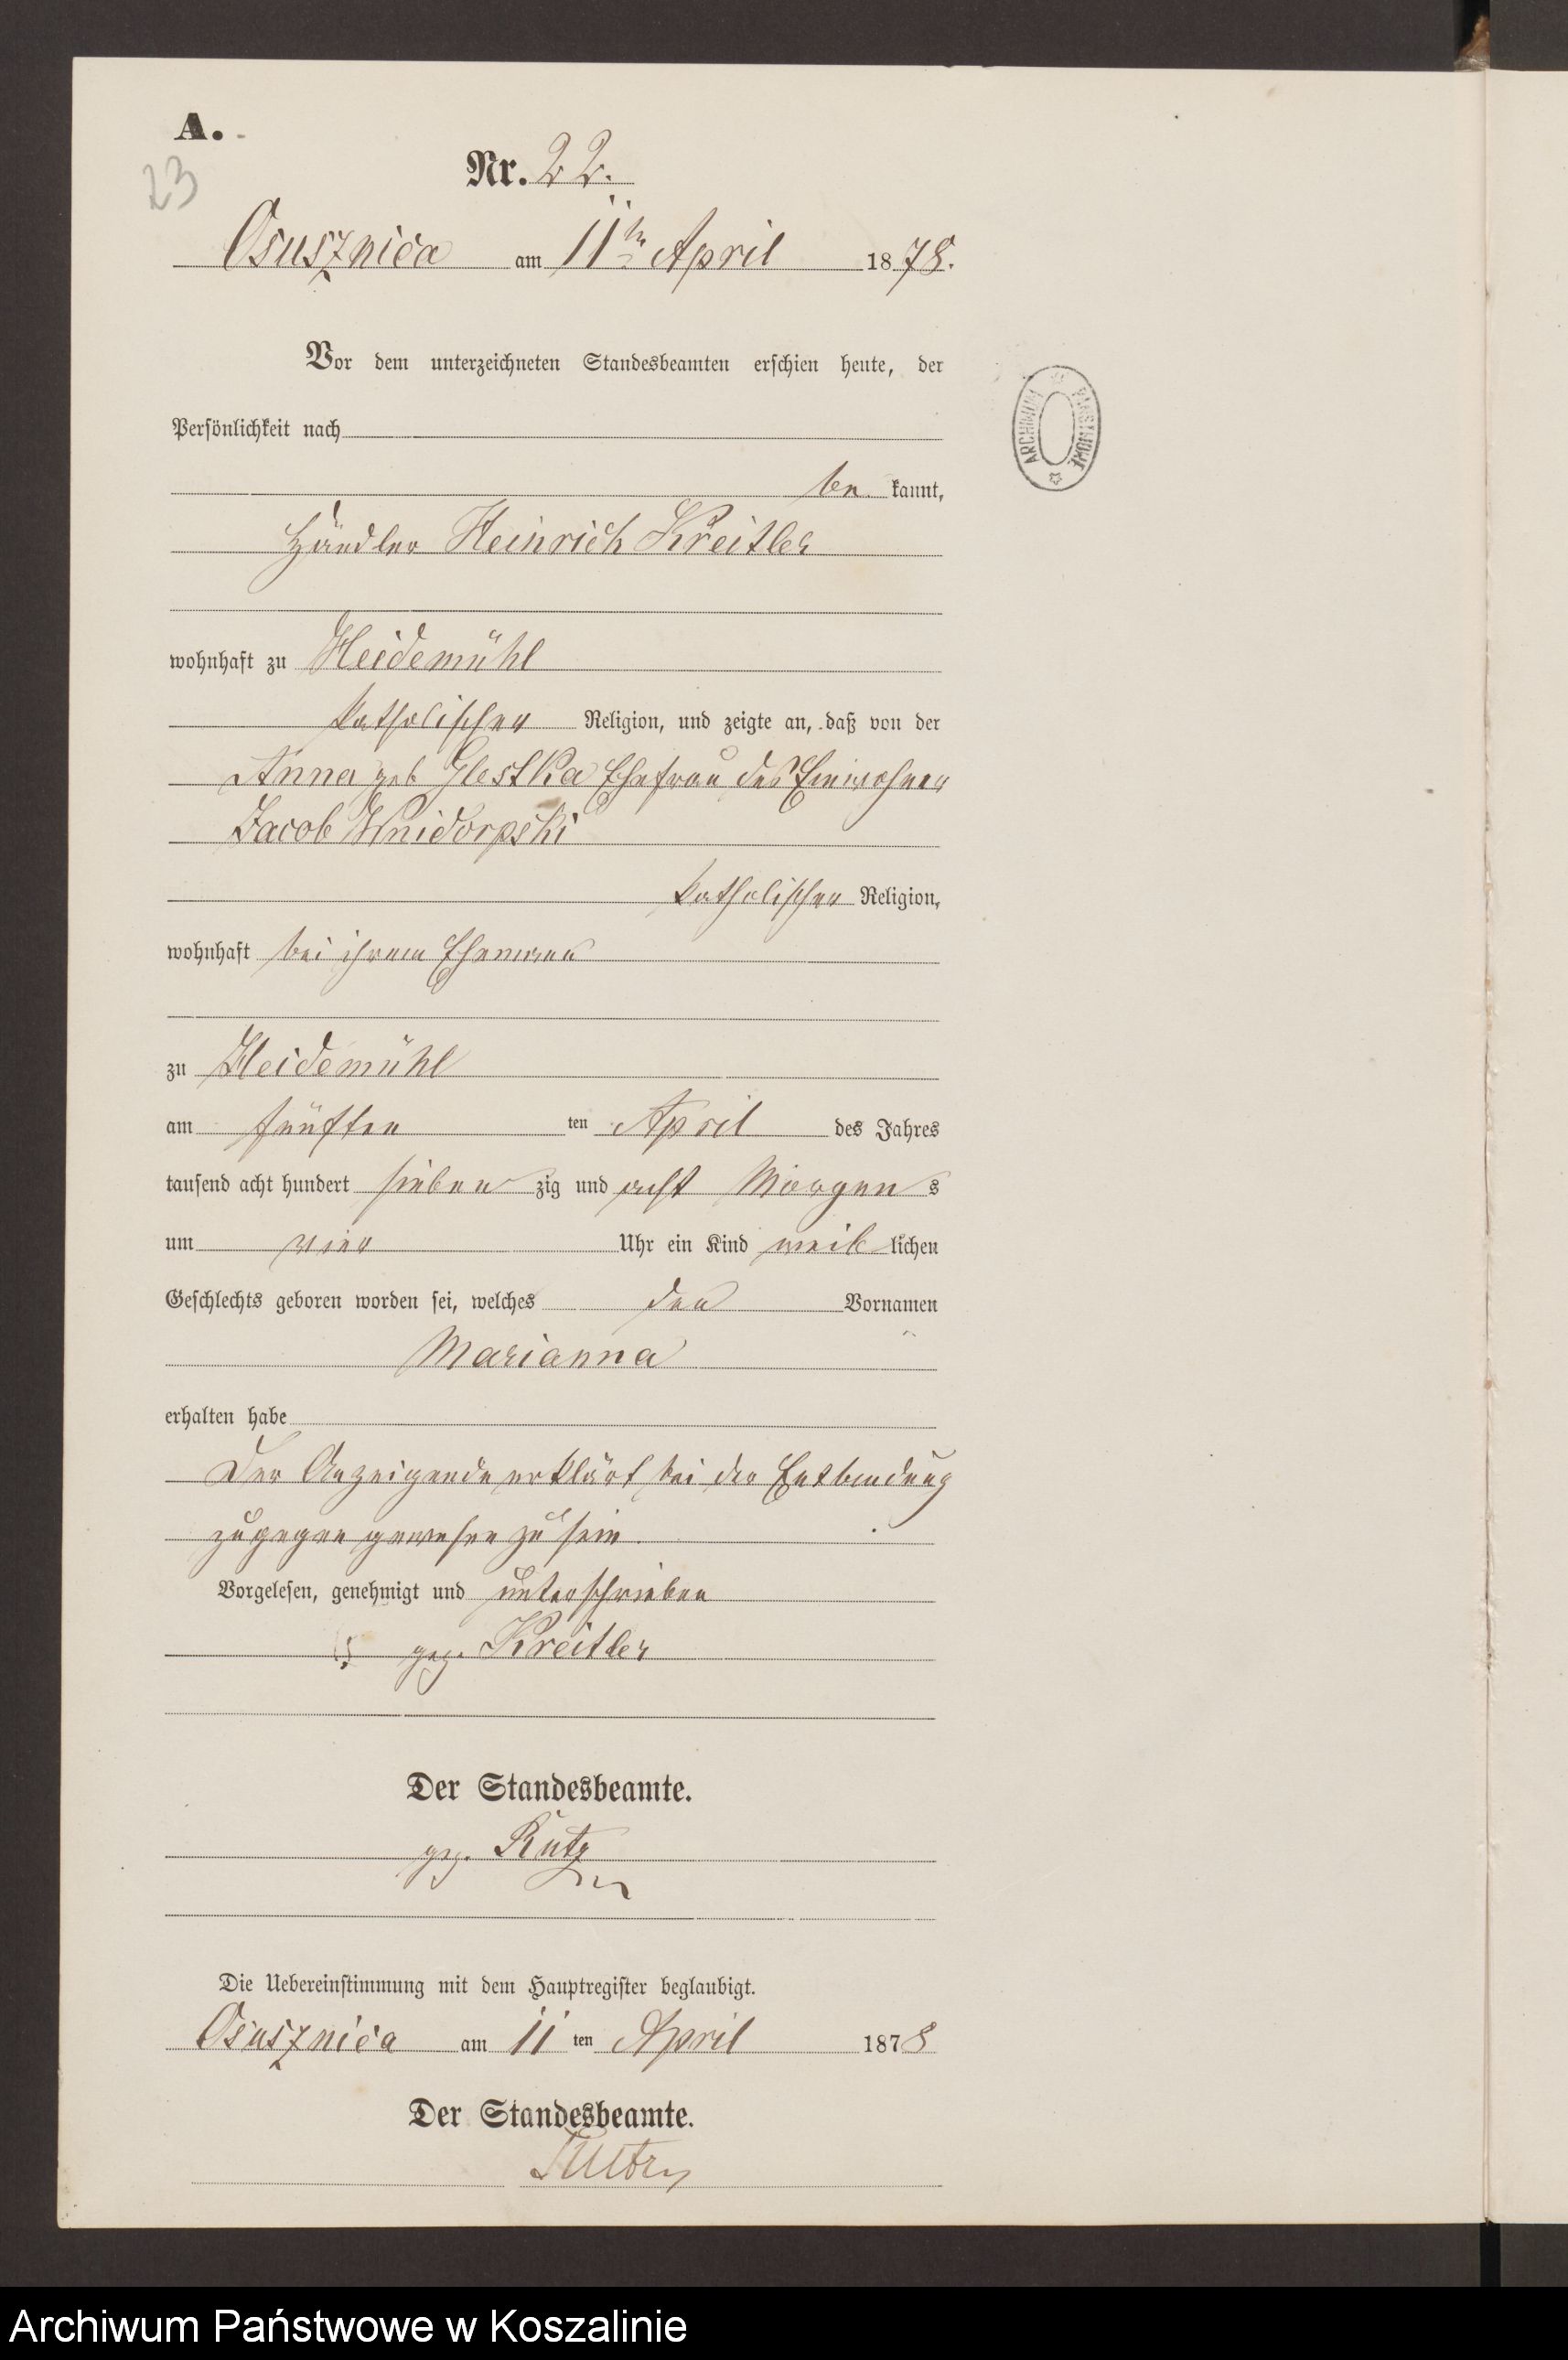 A.
23
Nr. 22.
Osusznica am 11ten April 1878.
Vor dem unterzeichneten Standesbeamten erschien heute, der
Persönlichkeit nach
be kannt,
Händler Heinrich Kreitler
wohnhaft zu Heidemühl
katholischer Religion, und zeigte an, daß von der
Anna geb Glestka Ehefrau des Einwohner
Jacob Wnidorpski
katholischer Religion,
wohnhaft bei ihrem Ehemann
zu Heidemühl
am fünften ten April des Jahres
tausend acht hundert sieben zig und acht Morgen s
um vier Uhr ein Kind weib lichen
Geschlechts geboren worden sei, welches den Vornamen
Marianna
erhalten habe
Der Anzeigende erklärt bei der Entbindung
zugegen gewesen zu sein.
Vorgelesen, genehmigt und unterschrieben
gez. Kreitler
Der Standesbeamte.
gez. Kutz
Die Uebereinstimmung mit dem Hauptregister beglaubigt.
Osusznica am 11 ten April 1878
Der Standesbeamte.
ARCHIWUM PAŃSTWOWE
Archiwum Państwowe w Koszalinie